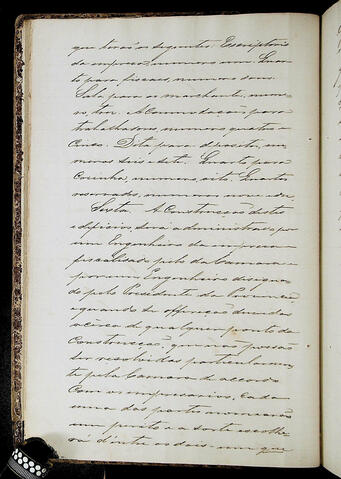 que terão os seguintes. Escriptorio
da empreza, numero um. Quar-
to para fiscaes, numero dous.
Sala para os marchantes, nume-
ro, tres. Accommodação para
trabalhadores, numeros quatro e
cinco. Dita para deposito, nu-
meros seis e sete. Quarto para
Cosinha, numero, oito. Quartos
reservados, numeros nove e dez.
Sexta. A Construcção destes
edificios será administrada por
um Engenheiro da empreza
fiscalisada pelo da Camara
por um Engenheiro designa-
do pelo Presidente da Provincia
e quando se offereção duvidas
acerca de qualquer ponto da
Construcção, que não possão
ser resolvidas particularmen-
te pela Camara de accordo
com os emprezarios, cada
uma das partes nomeará
um perito e a sorte escolhe-
rá d'entre os dois um que